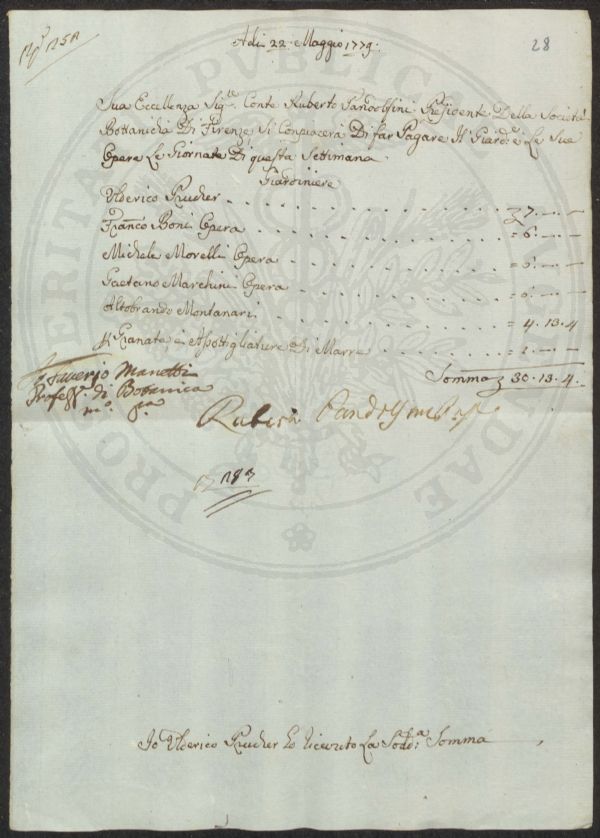 28
Adi 22: Maggio 1779:
Sua Eccellenza Sig.e Conte Ruberto Pandolfini Presidente Della Società
Bottanicha Di Firenze Si Conpiacera Di far Pagare Il Giard.e e Le Sue
Opere Le Giornate Di questa Settimana
Giardiniere
Ulderico Prucher . . . 7. — —
Franco Boni Opera . . . = 6. — —
Michele Morelli Opera . . . = 6. — —
Gaetano Marchini Opera . . . = 6. — —
Altobrando Montanari . . . = 4. 13. 4
Granate e Apottigliature Di Marre . . . = 1. — —
Somma 30. 13. 4.
Saverio Manetti
Profess.e di Botanica
m.o
Ruberto Pandolfini
Io Ulderico Prucher Ho Riceuto La Sod.a Somma
PUBLICAE
PROSPERITATI